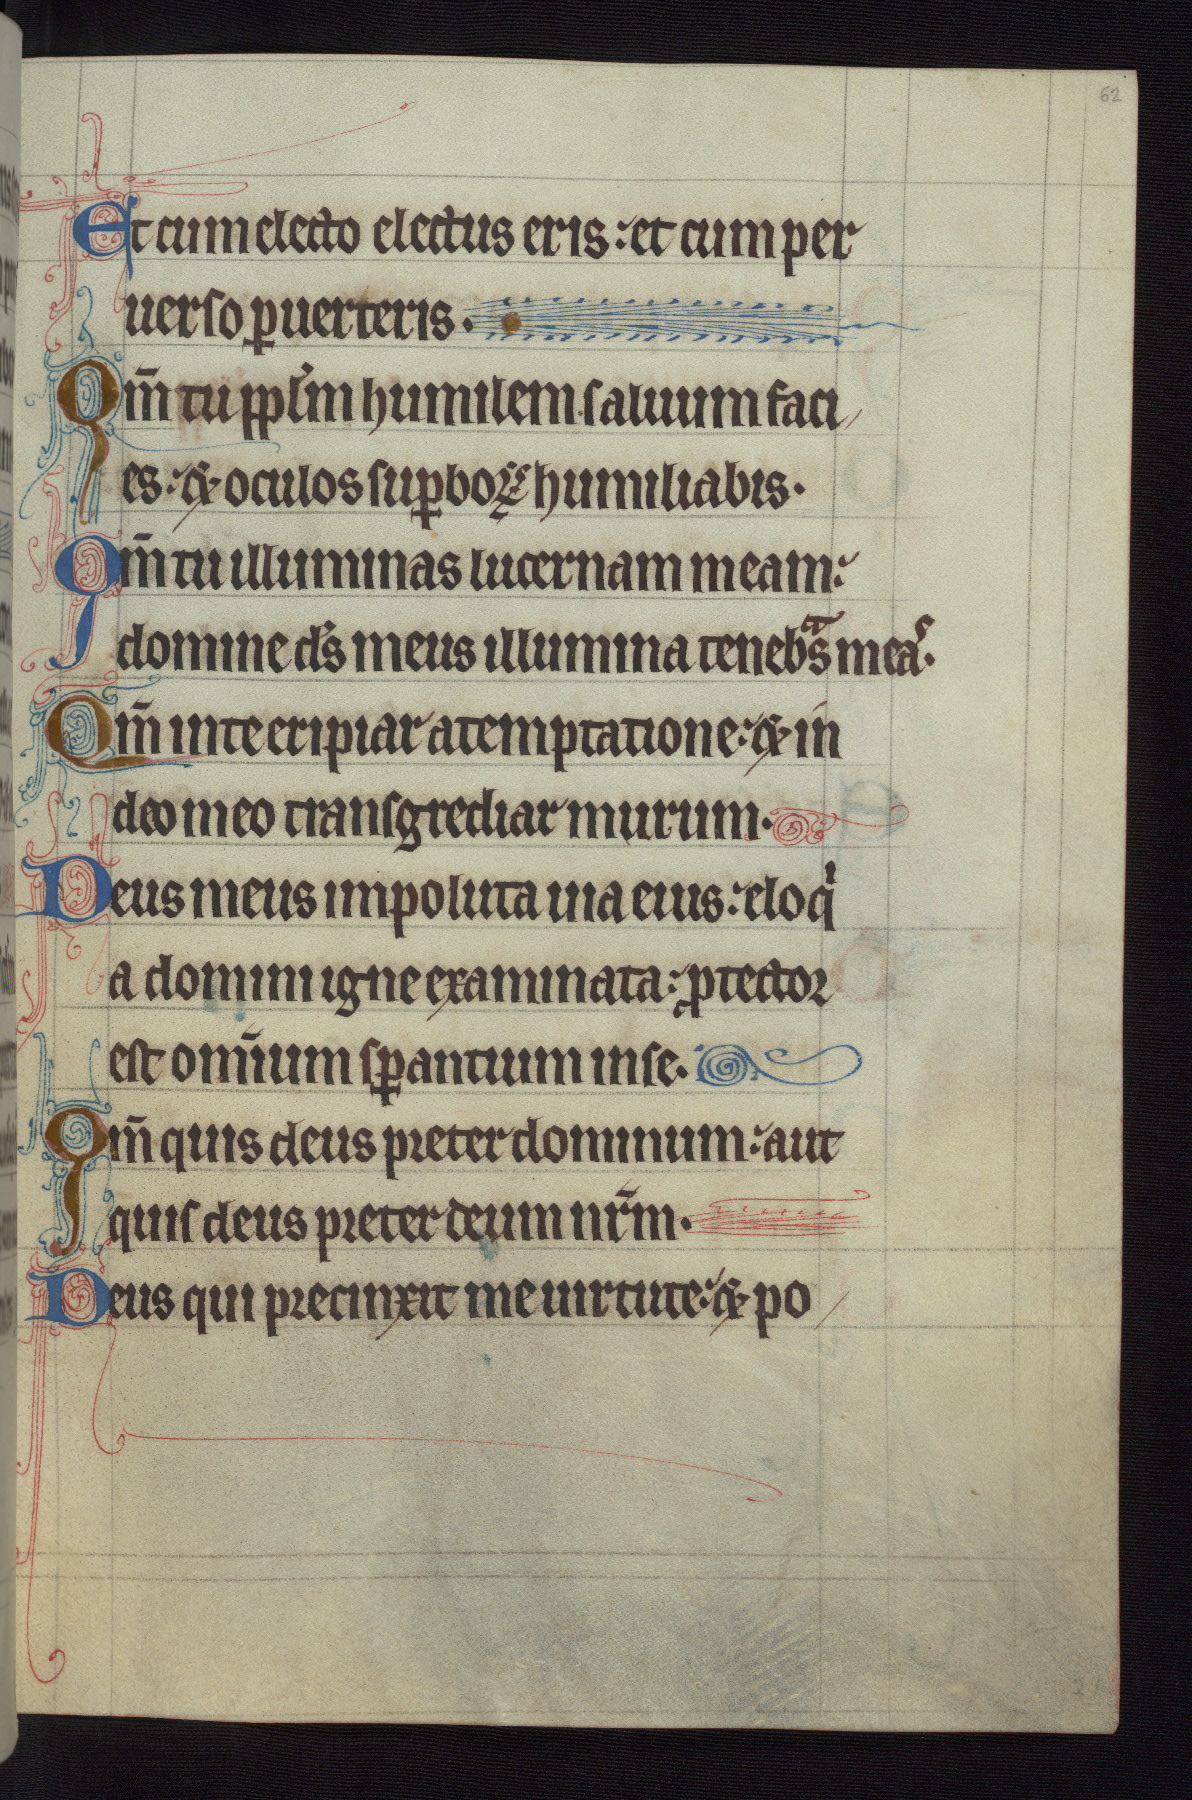 62
Et cum electo electus eris: et cum per
uerso ꝑuerteris.
Qm̄ tu ppl̓m humilem saluum faci
es: & oculos suꝑboꝝ humiliabis.
Qm̄ tu illuminas lucernam meam:
domine ds̓ meus illumina tenebᵃs meaˢ.
Qm̄ in te eripiar a temptatione: & in
deo meo transgrediar murum.
Deus meus impoluta uia eius: eloqⁱ
a domini igne examinata: ꝓtector
est omīum sꝑantium in se.
Qm̄ quis deus preter dominum: aut
quis deus preter deum nr̄m.
Deus qui precinxit me uirtute: & po